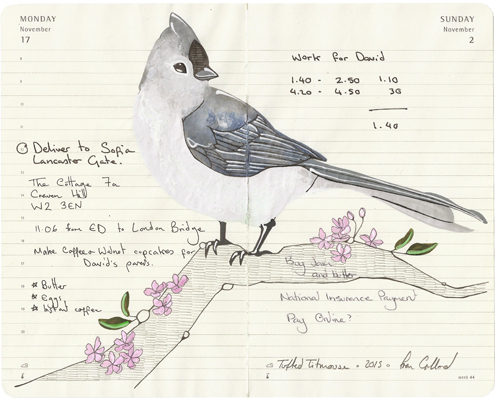 MONDAY
November
17
Deliver to Sofia
Lancaster Gate.
The Cottage 7a
Craven Hill
W2 3EN
11.06 from ED to London Bridge
Make Coffee & Walnut cupcakes for
David's parents.
* Butter
* Eggs
* Instant coffee
SUNDAY
November
2
Work for David
1.40 - 2.50 1.10
4.20 - 4.50 30
1.40
Buy Jam
and butter
National Insurance Payment
Pay Online?
Tufted Titmouse . 2013 .
week 44